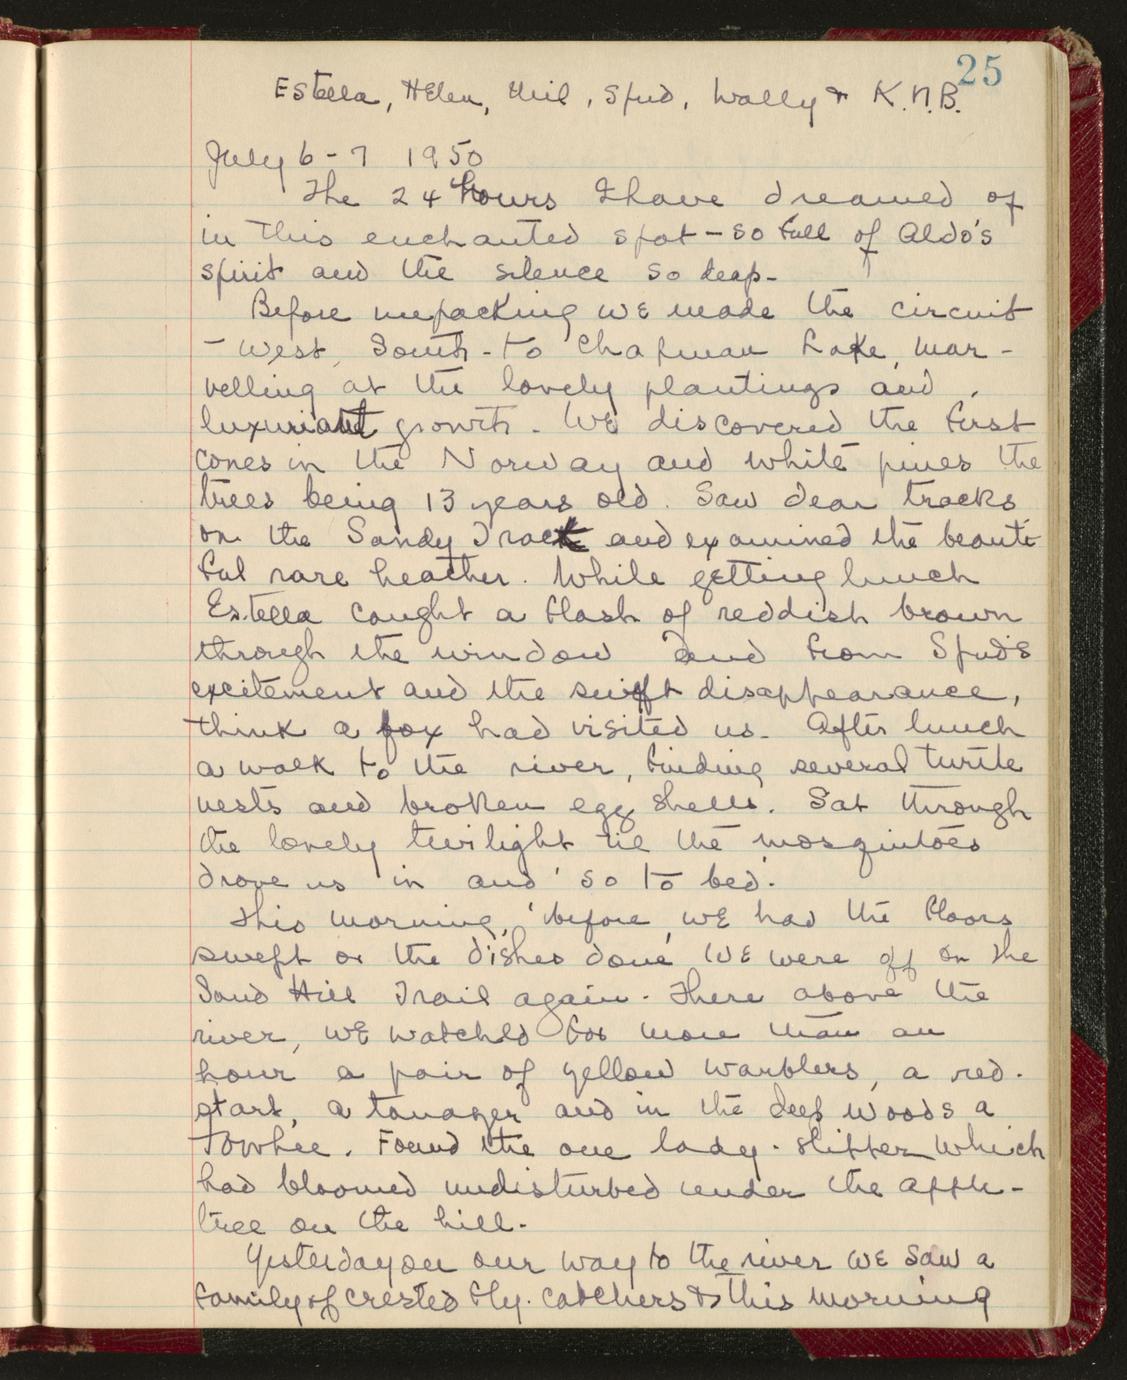 25
Estella, Helen, Emil, Spud, Wally & K.N.B.
July 6-7 1950
The 24 hours I have dreamed of
in this enchanted spot - so full of Aldo's
spirit and the silence so deep -
Before unpacking we made the circuit
- West, South - to Chapman Lake, mar-
velling at the lovely plantings and
luxuriant growth. We discovered the first
cones in the Norway and white pines the
trees being 13 years old. Saw dear tracks
on the Sandy Track and examined the beauti
ful rare heather. While getting lunch
Estella caught a flash of reddish brown
through the window and from Spud's
excitement and the swift disappearance,
think a fox had visited us. After lunch
a walk to the river, finding several turtle
nests and broken egg shells. Sat through
the lovely twilight til the mosquitoes
drove us in and 'so to bed'.
This morning, before we had the floors
swept or the dishes done we were off on the
Sand Hill Trail again. There above the
river, we watched for more than an
hour a pair of yellow warblers, a red-
start, a tanager and in the deep woods a
Towhee. Found the one lady-slipper which
had bloomed undisturbed under the apple-
tree on the hill.
Yesterday on our way to the river we saw a
family of crested fly-catchers & this morning